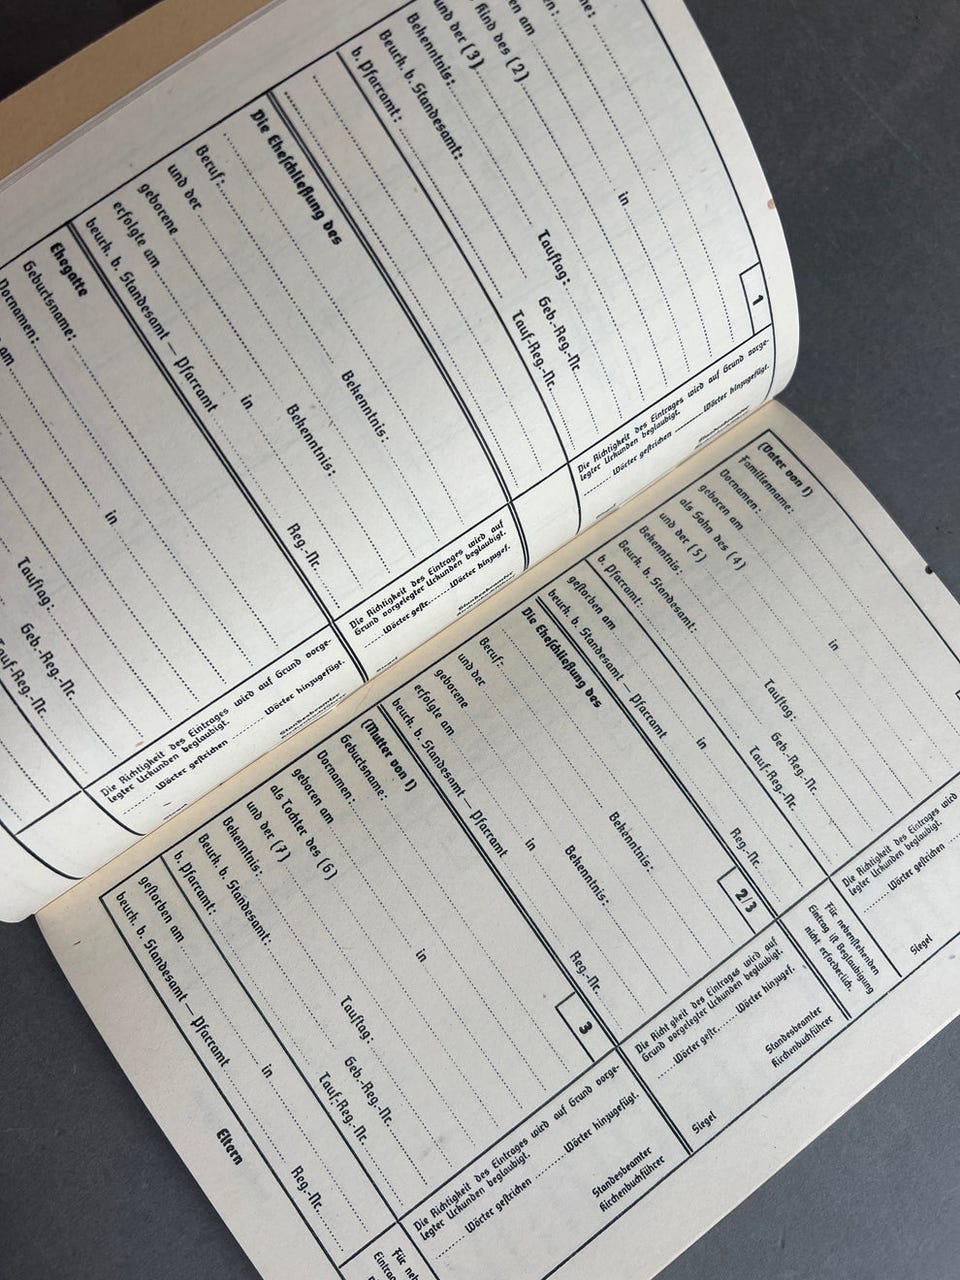 und der (3)
Bekenntnis:
Beurk. b. Standesamt:
b. Pfarramt:
in
Tauftag:
Geb.-Reg.-Nr.
Tauf-Reg.-Nr.
1
Die Richtigkeit des Eintrages wird auf Grund vorge-
legter Urkunden beglaubigt.
Wörter gestrichen Wörter hinzugefügt.
Die Eheschließung des
Beruf: Bekenntnis:
und der
geborene Bekenntnis:
erfolgte am in
beurk. b. Standesamt — Pfarramt Reg.-Nr.
Die Richtigkeit des Eintrages wird auf
Grund vorgelegter Urkunden beglaubigt.
Wörter gestr. Wörter hinzugef.
Ehegatte
Geburtsname:
Vornamen:
am in
Tauftag:
Geb.-Reg.-Nr.
Tauf-Reg.-Nr.
Die Richtigkeit des Eintrages wird auf Grund vorge-
legter Urkunden beglaubigt.
Wörter gestrichen Wörter hinzugefügt.
(Vater von 1)
Familienname:
Vornamen:
geboren am in
als Sohn des (4)
und der (5)
Bekenntnis: Tauftag:
Beurk. b. Standesamt: Geb.-Reg.-Nr.
b. Pfarramt: Tauf-Reg.-Nr.
Die Richtigkeit des Eintrages wird
legter Urkunden beglaubigt.
Wörter gestrichen
Siegel
gestorben am in
beurk. b. Standesamt — Pfarramt Reg.-Nr.
Für nebenstehenden
Eintrag ist Beglaubigung
nicht erforderlich.
Die Eheschließung des
2/3
Beruf: Bekenntnis:
und der
geborene Bekenntnis:
erfolgte am in
beurk. b. Standesamt — Pfarramt Reg.-Nr.
Die Richtigkeit des Eintrages wird auf
Grund vorgelegter Urkunden beglaubigt.
Wörter gestr. Wörter hinzugef.
Standesbeamter
Kirchenbuchführer
Siegel
(Mutter von 1)
3
Geburtsname:
Vornamen:
geboren am in
als Tochter des (6)
und der (7)
Bekenntnis: Tauftag:
Beurk. b. Standesamt: Geb.-Reg.-Nr.
b. Pfarramt: Tauf-Reg.-Nr.
Die Richtigkeit des Eintrages wird auf Grund vorge-
legter Urkunden beglaubigt.
Wörter gestrichen Wörter hinzugefügt.
Standesbeamter
Kirchenbuchführer
gestorben am in
beurk. b. Standesamt — Pfarramt Reg.-Nr.
Eltern